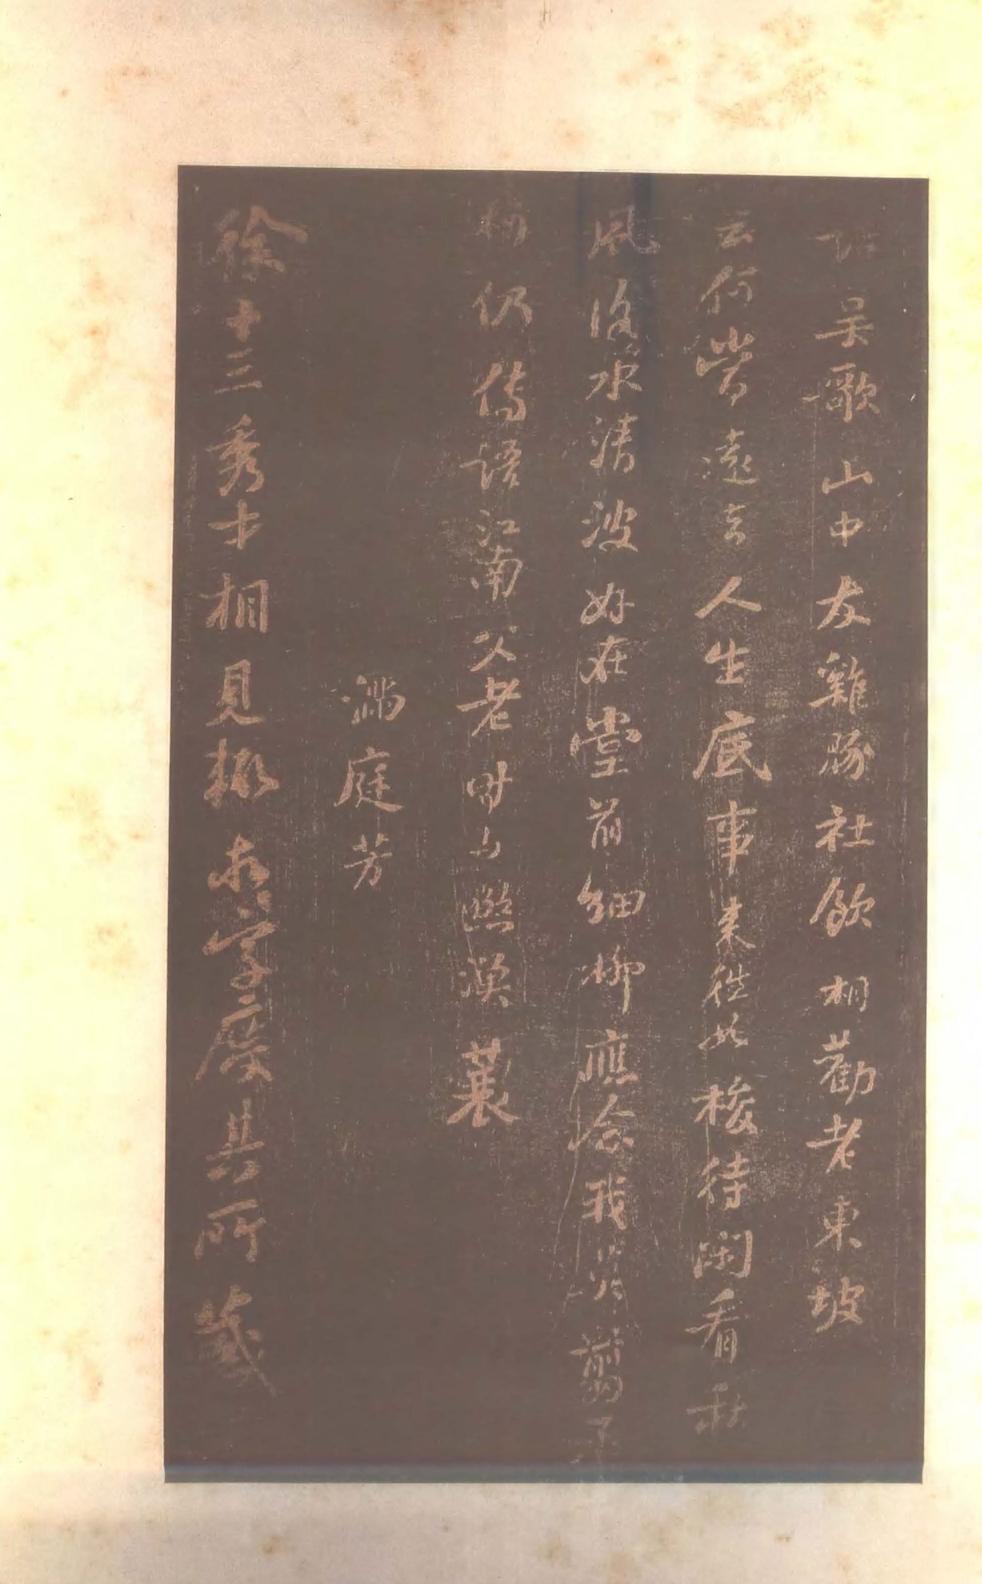 吴歌山中友雞豚社飲相勸老東坡
云何當遠去人生底事来往如梭待閑看秋
風洛水清波好在堂前細柳應念我莫翦柔
柯仍傳語江南父老時与曬漁蓑
滿庭芳
徐十三秀才相見輒求字屢其所藏